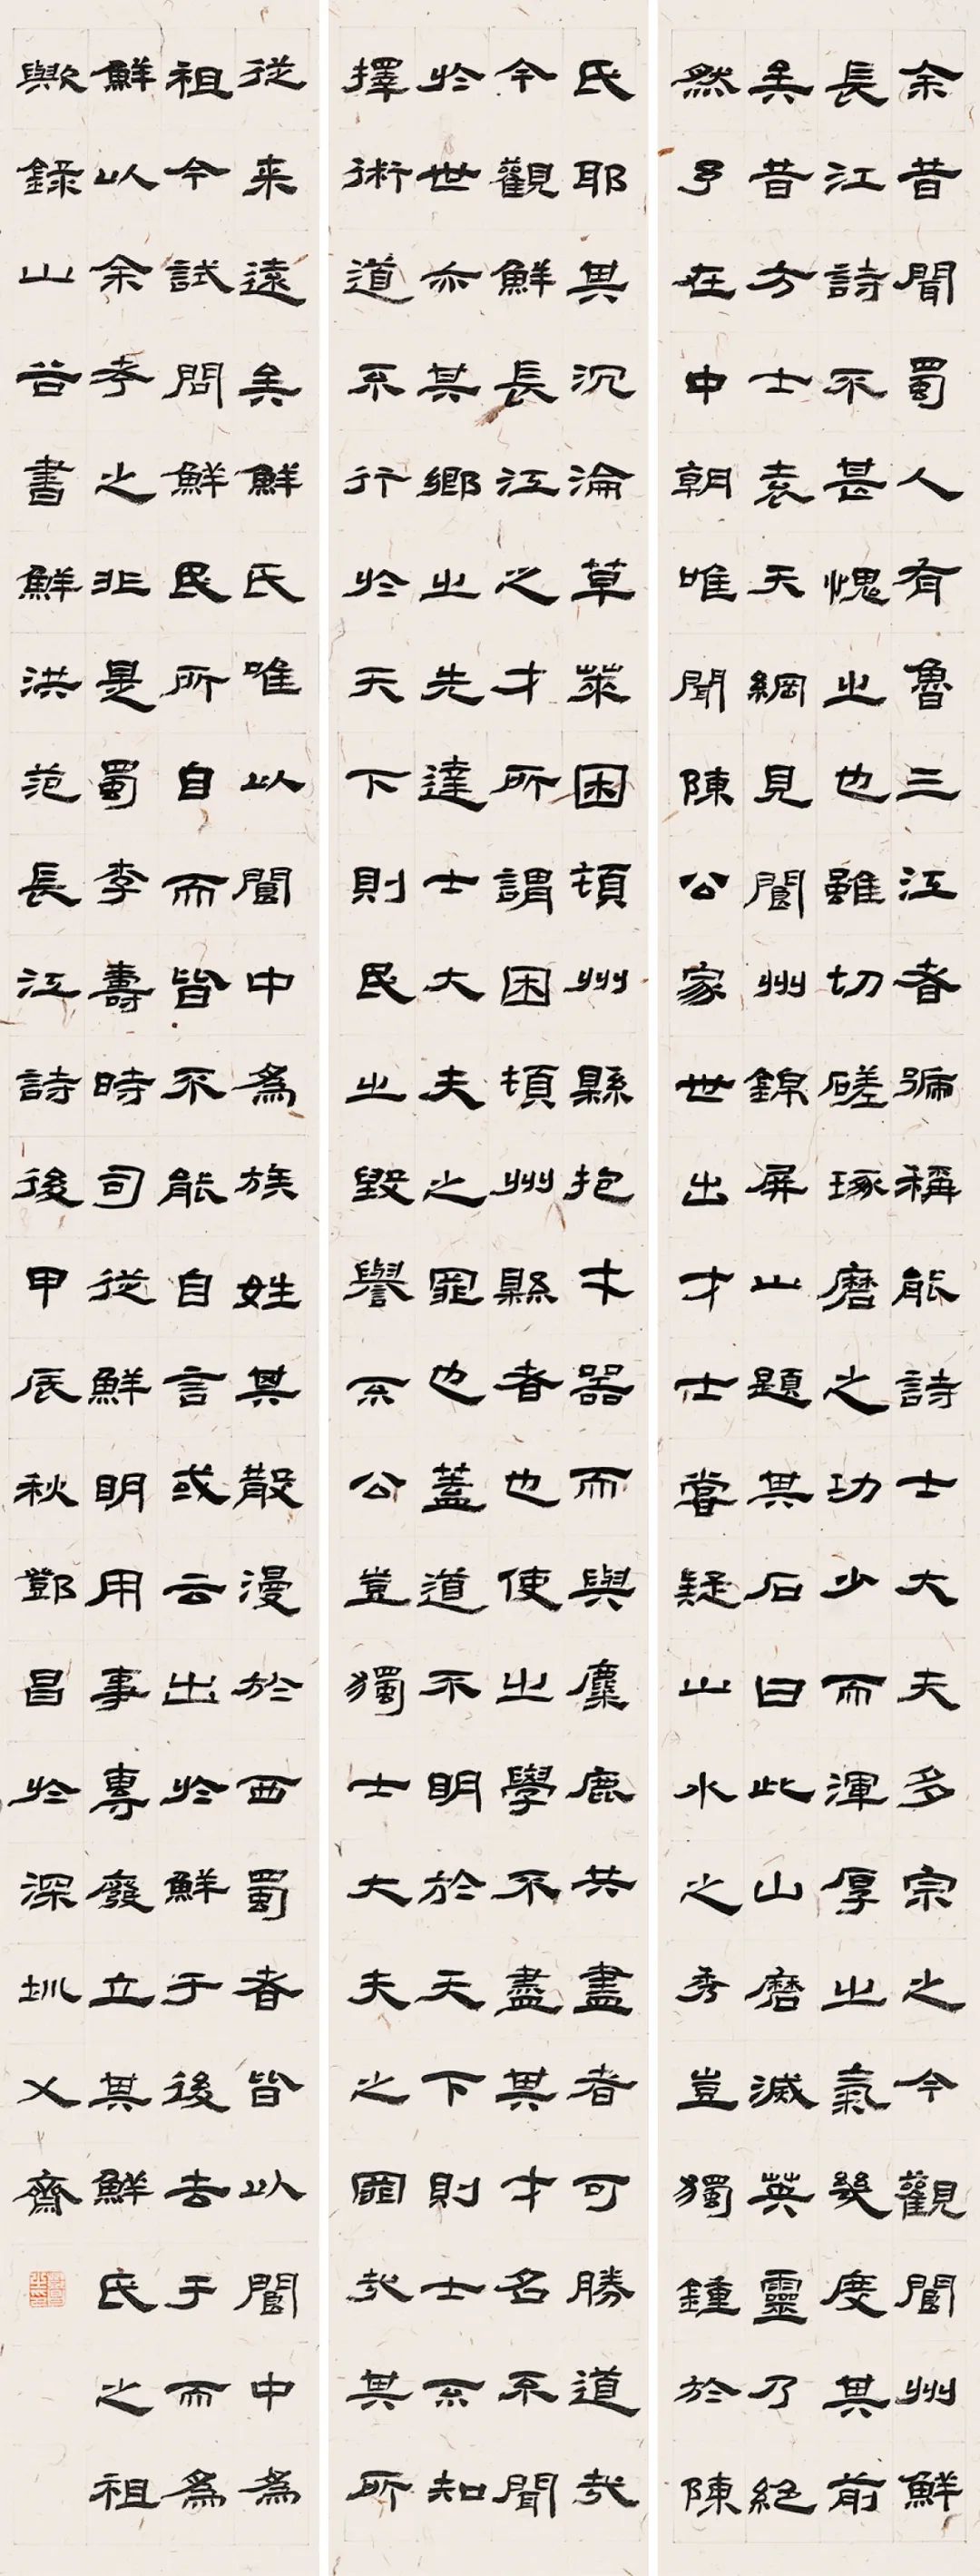 余昔聞蜀人有魯三江者號稱能詩士大夫多宗之今觀閬州鮮
長江詩不甚愧之也雖切磋琢磨之功少而渾厚之氣幾度其前
矣昔方士袁天綱見閬州錦屏山題其石曰此山磨滅英靈乃絕
然乎在中朝唯聞陳公家世出才士嘗疑山水之秀豈獨鍾於陳
氏耶其沉淪草萊困頓州縣抱才器而與麋鹿共盡者可勝道哉
今觀鮮長江之才所謂困頓州縣者也使之學不盡其才名不聞
於世亦其鄉之先達士大夫之罪也蓋道不明於天下則士不知
擇術道不行於天下則民之毀譽不公豈獨士大夫之罪哉其所
從來遠矣鮮氏唯以閬中為族姓其散漫於西蜀者皆以閬中為
祖今試問鮮民所自而皆不能自言或云出於鮮于後去于而為
鮮以余考之非是蜀李壽時司從鮮明用事專廢立其鮮氏之祖
歟錄山谷書鮮洪范長江詩後甲辰秋鄧昌於深圳乂齋